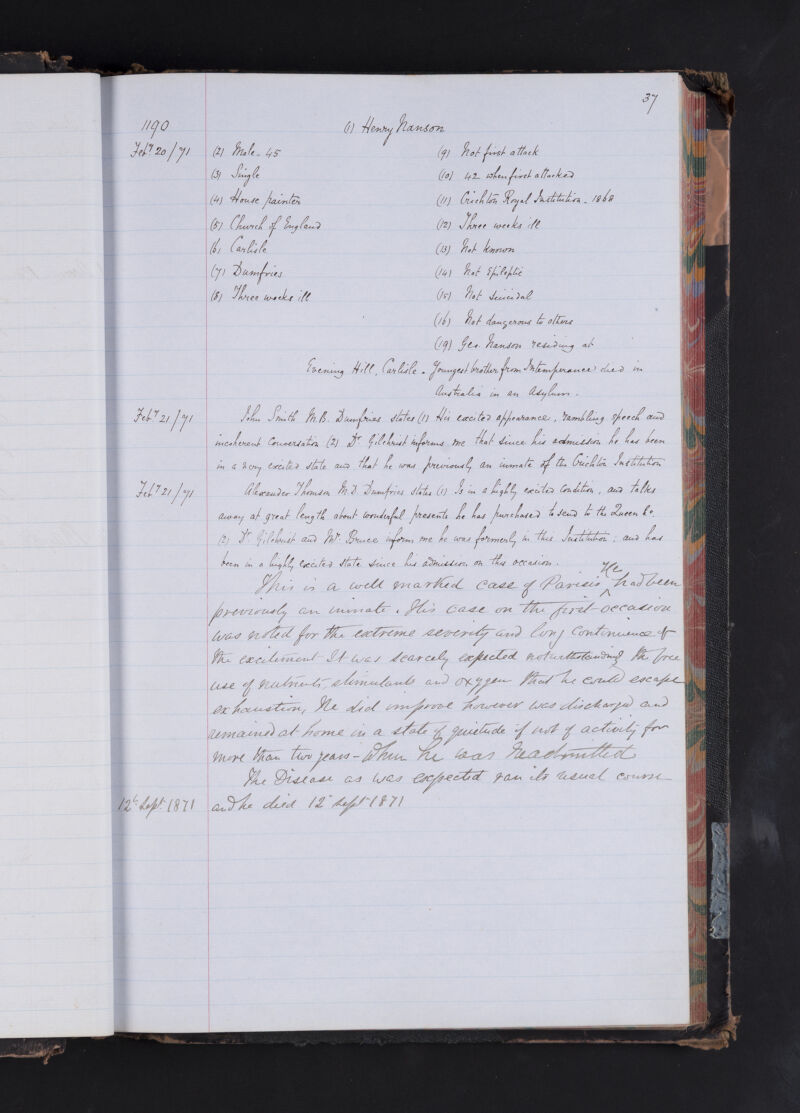 37
1190 (1) Henry Nanson
Feby 20/71 (2) Male - 45 (9) Not first attack
(3) Single (10) 42 when first attacked
(4) House painter (11) Crichton Royal Institution - 1868
(5) Church of England (12) Three weeks ill
(6) Carlisle (13) Not known
(7) Dumfries (14) Not Epileptic
(8) Three weeks ill (15) Not Suicidal
(16) Not dangerous to others
(19) Geo. Nanson residing at
Evening Hill, Carlisle - Youngest brother from Intemperance died in
Australia in an Asylum.
Feby 21/71 John Smith M.B. Dumfries states (1) His excited appearance, rambling speech and
incoherent conversation (2) Dr Gilchrist informs me that since his admission he has been
in a very excited state and that he was previously an inmate of the Crichton Institution
Feby 21/71 Alexander Thomson M.D. Dumfries states (1) Is in a highly excited condition, and talks
away at great length about wonderful presents he has purchased to send to the Queen &c.
(2) Dr Gilchrist and Mr Bruce inform me he was formerly in this Institution; and has
been in a highly excited state since his admission on this occasion.
This is a well marked case of Parisis He had been
previously an inmate. His case on the first occasion
was noted for the extreme severity and long continuence of
the excitement It was scarcely expected notwithstanding the free
use of nutrients, stimulants and oxygen that he could escape
exhaustion, He did improve however was discharged and
remained at home in a state of quietude if not of activity for
more than two years - when he was readmitted
The Disease as was expected ran its usual course
12th Sept 1871 and he died 12th Sept 1871